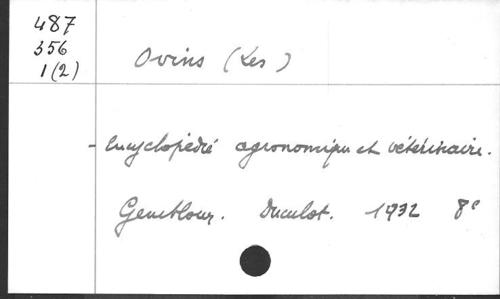 487
356
1(2)
Ovins (Les)
- Encyclopédie agronomique et vétérinaire.
Gembloux. Duculot. 1932 8°